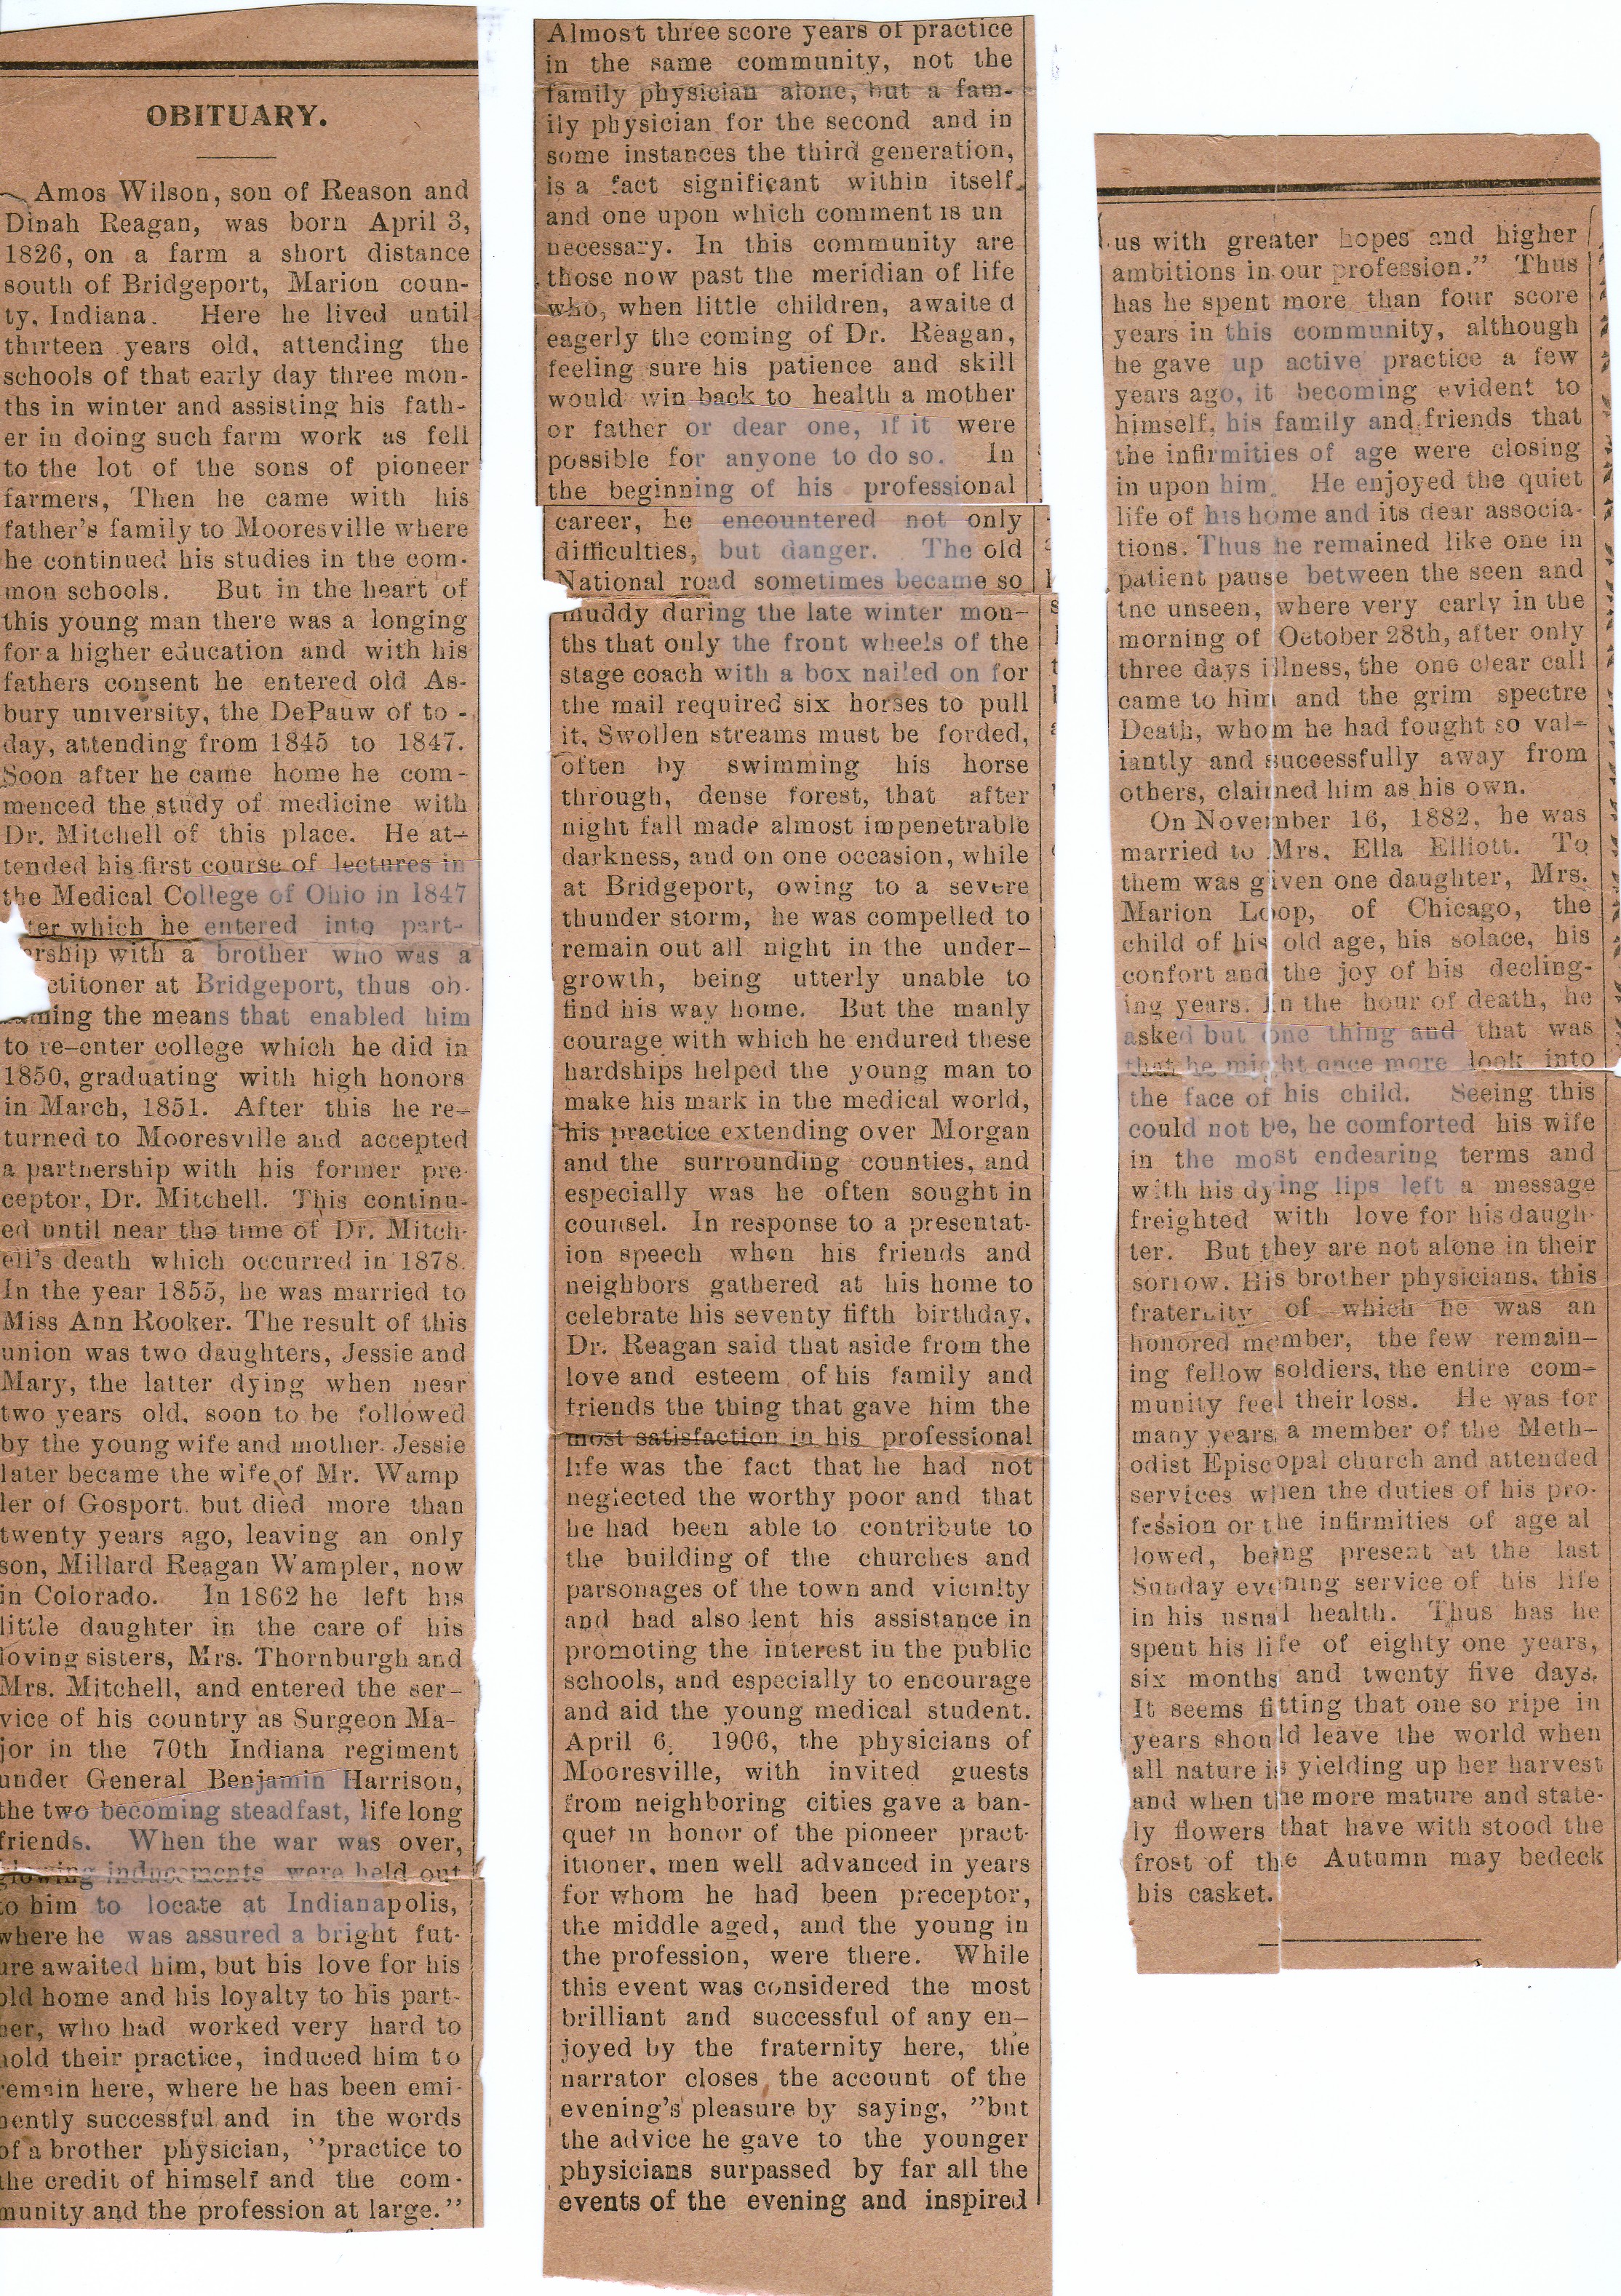 OBITUARY.
Amos Wilson, son of Reason and
Dinah Reagan, was born April 3,
1826, on a farm a short distance
south of Bridgeport, Marion coun-
ty, Indiana. Here he lived until
thirteen years old, attending the
schools of that early day three mon-
ths in winter and assisting his fath-
er in doing such farm work as fell
to the lot of the sons of pioneer
farmers, Then he came with his
father's family to Mooresville where
he continued his studies in the com-
mon schools. But in the heart of
this young man there was a longing
for a higher education and with his
fathers consent he entered old As-
bury university, the DePauw of to -
day, attending from 1845 to 1847.
Soon after he came home he com-
menced the study of medicine with
Dr. Mitchell of this place. He at-
tended his first course of lectures in
the Medical College of Ohio in 1847
ter which he entered into part-
rship with a brother who was a
ctitoner at Bridgeport, thus ob-
ining the means that enabled him
to re-enter college which he did in
1850, graduating with high honors
in March, 1851. After this he re-
turned to Mooresville and accepted
a partnership with his former pre-
ceptor, Dr. Mitchell. This continu-
ed until near the time of Dr. Mitch-
ell's death which occurred in 1878.
In the year 1855, he was married to
Miss Ann Rooker. The result of this
union was two daughters, Jessie and
Mary, the latter dying when near
two years old, soon to be followed
by the young wife and mother. Jessie
later became the wife of Mr. Wamp
ler of Gosport. but died more than
twenty years ago, leaving an only
son, Millard Reagan Wampler, now
in Colorado. In 1862 he left his
little daughter in the care of his
loving sisters, Mrs. Thornburgh and
Mrs. Mitchell, and entered the ser-
vice of his country as Surgeon Ma-
jor in the 70th Indiana regiment
under General Benjamin Harrison,
the two becoming steadfast, life long
friends. When the war was over,
glowing inducements were held out
to him to locate at Indianapolis,
where he was assured a bright fut-
ure awaited him, but his love for his
old home and his loyalty to his part-
ner, who had worked very hard to
hold their practice, induced him to
remain here, where he has been emi-
nently successful and in the words
of a brother physician, "practice to
the credit of himself and the com-
munity and the profession at large."
Almost three score years of practice
in the same community, not the
family physician alone, but a fam-
ily physician for the second and in
some instances the third generation,
is a fact significant within itself,
and one upon which comment is un
necessary. In this community are
those now past the meridian of life
who, when little children, awaited
eagerly the coming of Dr. Reagan,
feeling sure his patience and skill
would win back to health a mother
or father or dear one, if it were
possible for anyone to do so. In
the beginning of his professional
career, he encountered not only
difficulties, but danger. The old
National road sometimes became so
muddy during the late winter mon-
ths that only the front wheels of the
stage coach with a box nailed on for
the mail required six horses to pull
it, Swollen streams must be forded,
often by swimming his horse
through, dense forest, that after
night fall made almost impenetrable
darkness, and on one occasion, while
at Bridgeport, owing to a severe
thunder storm, he was compelled to
remain out all night in the under-
growth, being utterly unable to
find his way home. But the manly
courage with which he endured these
hardships helped the young man to
make his mark in the medical world,
his practice extending over Morgan
and the surrounding counties, and
especially was he often sought in
counsel. In response to a presentat-
ion speech when his friends and
neighbors gathered at his home to
celebrate his seventy fifth birthday,
Dr. Reagan said that aside from the
love and esteem of his family and
friends the thing that gave him the
most satisfaction in his professional
life was the fact that he had not
neglected the worthy poor and that
he had been able to contribute to
the building of the churches and
parsonages of the town and vicinity
and had also lent his assistance in
promoting the interest in the public
schools, and especially to encourage
and aid the young medical student.
April 6, 1906, the physicians of
Mooresville, with invited guests
from neighboring cities gave a ban-
quet in honor of the pioneer pract-
itioner, men well advanced in years
for whom he had been preceptor,
the middle aged, and the young in
the profession, were there. While
this event was considered the most
brilliant and successful of any en-
joyed by the fraternity here, the
narrator closes the account of the
evening's pleasure by saying, "but
the advice he gave to the younger
physicians surpassed by far all the
events of the evening and inspired
us with greater hopes and higher
ambitions in our profession." Thus
has he spent more than four score
years in this community, although
he gave up active practice a few
years ago, it becoming evident to
himself, his family and friends that
the infirmities of age were closing
in upon him. He enjoyed the quiet
life of his home and its dear associa-
tions. Thus he remained like one in
patient pause between the seen and
the unseen, where very early in the
morning of October 28th, after only
three days illness, the one clear call
came to him and the grim spectre
Death, whom he had fought so val-
iantly and successfully away from
others, claimed him as his own.
On November 16, 1882, he was
married to Mrs. Ella Elliott. To
them was given one daughter, Mrs.
Marion Loop, of Chicago, the
child of his old age, his solace, his
confort and the joy of his decling-
ing years. In the hour of death, he
asked but one thing and that was
that he might once more look into
the face of his child. Seeing this
could not be, he comforted his wife
in the most endearing terms and
with his dying lips left a message
freighted with love for his daugh-
ter. But they are not alone in their
sorrow. His brother physicians, this
fraternity of which he was an
honored member, the few remain-
ing fellow soldiers, the entire com-
munity feel their loss. He was for
many years a member of the Meth-
odist Episcopal church and attended
services when the duties of his pro-
fession or the infirmities of age al
lowed, being present at the last
Sunday evening service of his life
in his usnal health. Thus has he
spent his life of eighty one years,
six months and twenty five days.
It seems fitting that one so ripe in
years should leave the world when
all nature is yielding up her harvest
and when the more mature and state-
ly flowers that have with stood the
frost of the Autumn may bedeck
his casket.